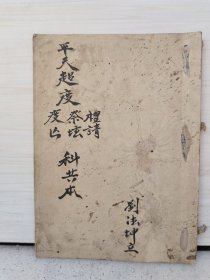 平天超度
禮請
度亡
科共本
劉法坤立